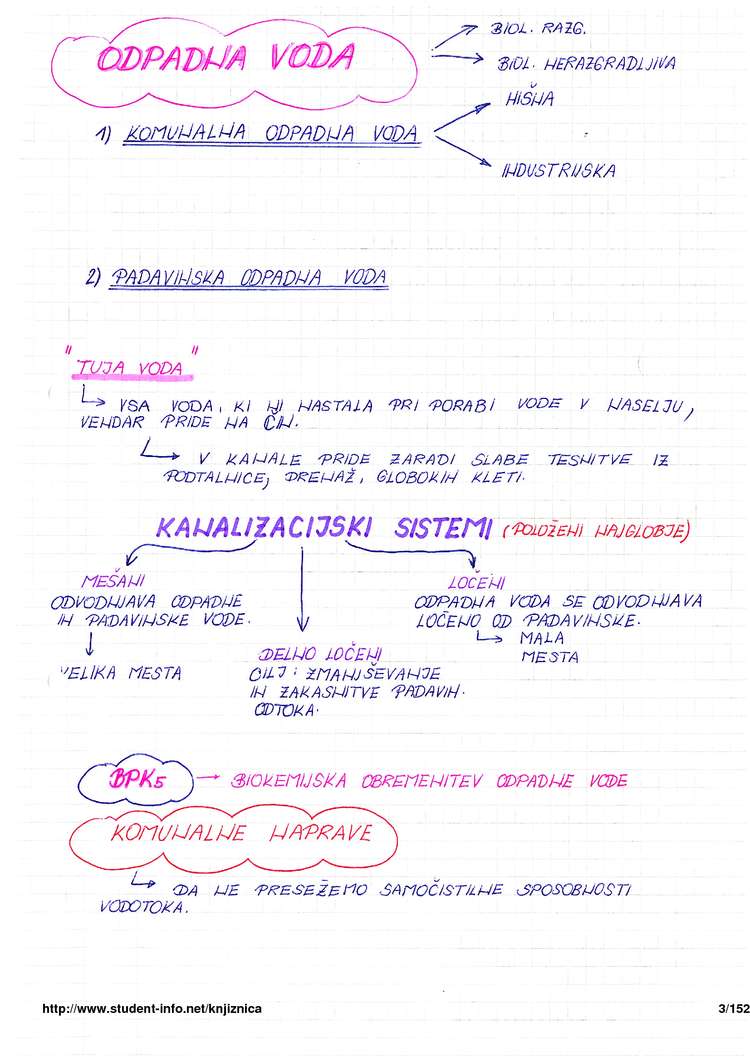 ODPADNA VODA
BIOL. RAZG.
BIOL. NERAZGRADLJIVA
1) KOMUNALNA ODPADNA VODA
HIŠNA
INDUSTRIJSKA
2) PADAVINSKA ODPADNA VODA
"TUJA VODA"
VSA VODA, KI NI NASTALA PRI PORABI VODE V NASELJU,
VENDAR PRIDE NA ČN.
V KANALE PRIDE ZARADI SLABE TESNITVE IZ
PODTALNICE, DRENAŽ, GLOBOKIH KLETI.
KANALIZACIJSKI SISTEMI (POLOŽENI NAJGLOBJE)
MEŠANI
ODVODNJAVA ODPADNE
IN PADAVINSKE VODE.
VELIKA MESTA
DELNO LOČENI
CILJ: ZMANJŠEVANJE
IN ZAKASNITVE PADAVIN.
ODTOKA.
LOČENI
ODPADNA VODA SE ODVODNJAVA
LOČENO OD PADAVINSKE.
MALA
MESTA
BPK5 → BIOKEMIJSKA OBREMENITEV ODPADNE VODE
KOMUNALNE NAPRAVE
DA NE PRESEŽEMO SAMOČISTILNE SPOSOBNOSTI
VODOTOKA.
http://www.student-info.net/knjiznica 3/152